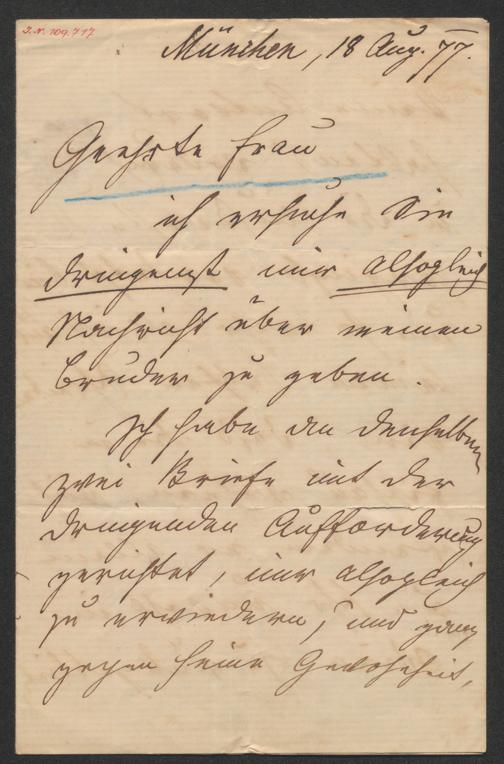 I.N. 109.717
München, 18 Aug. 77.
Geehrte Frau
ich ersuche Sie
dringenst mir alsogleich
Nachricht über meinen
Bruder zu geben.
Ich habe an denselben
zwei Briefe mit der
dringenden Aufforderung
gerichtet, mir alsogleich
zu erwiedern, und ganz
gegen seine Gewohnheit,